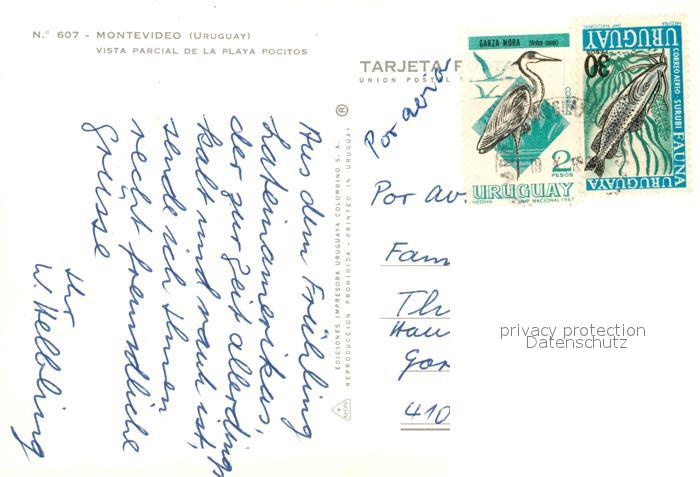 N.° 607 - MONTEVIDEO (URUGUAY)
VISTA PARCIAL DE LA PLAYA POCITOS
TARJETA
UNION POSTAL
Aus dem Frühling
Lateinamerikas,
der zur Zeit allerdings
kalt und rauh ist,
sende ich Ihnen
recht freundliche
Grüsse
Ihr
W. Helbling
EDICIONES IMPRESORA URUGUAYA COLOMBINO S. A.
REPRODUCCION PROHIBIDA - PRINTED IN URUGUAY
®
AVON
Por avion
Por Av.
Fam
Th
Hau
Gar
410
GARZA MORA (Ardea cocoi)
CORREOS
2
PESOS
URUGUAY
MEDINA IMP NACIONAL 1967
MEDINA IMP NACIONAL
URUGUAY
30
PESOS
CORREO AEREO - SURUBI
FAUNA
URUGUAYA
privacy protection
Datenschutz